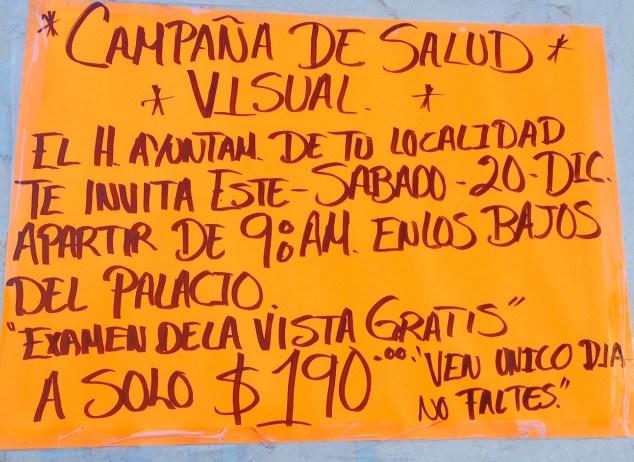 * CAMPAÑA DE SALUD *
* VISUAL. *
EL H. AYUNTAM. DE TU LOCALIDAD
TE INVITA ESTE-SABADO-20-DIC.
APARTIR DE 9:00 AM. ENLOS BAJOS
DEL PALACIO.
"EXAMEN DELA VISTA GRATIS"
A SOLO $190.00. "VEN UNICO DIA
NO FALTES."